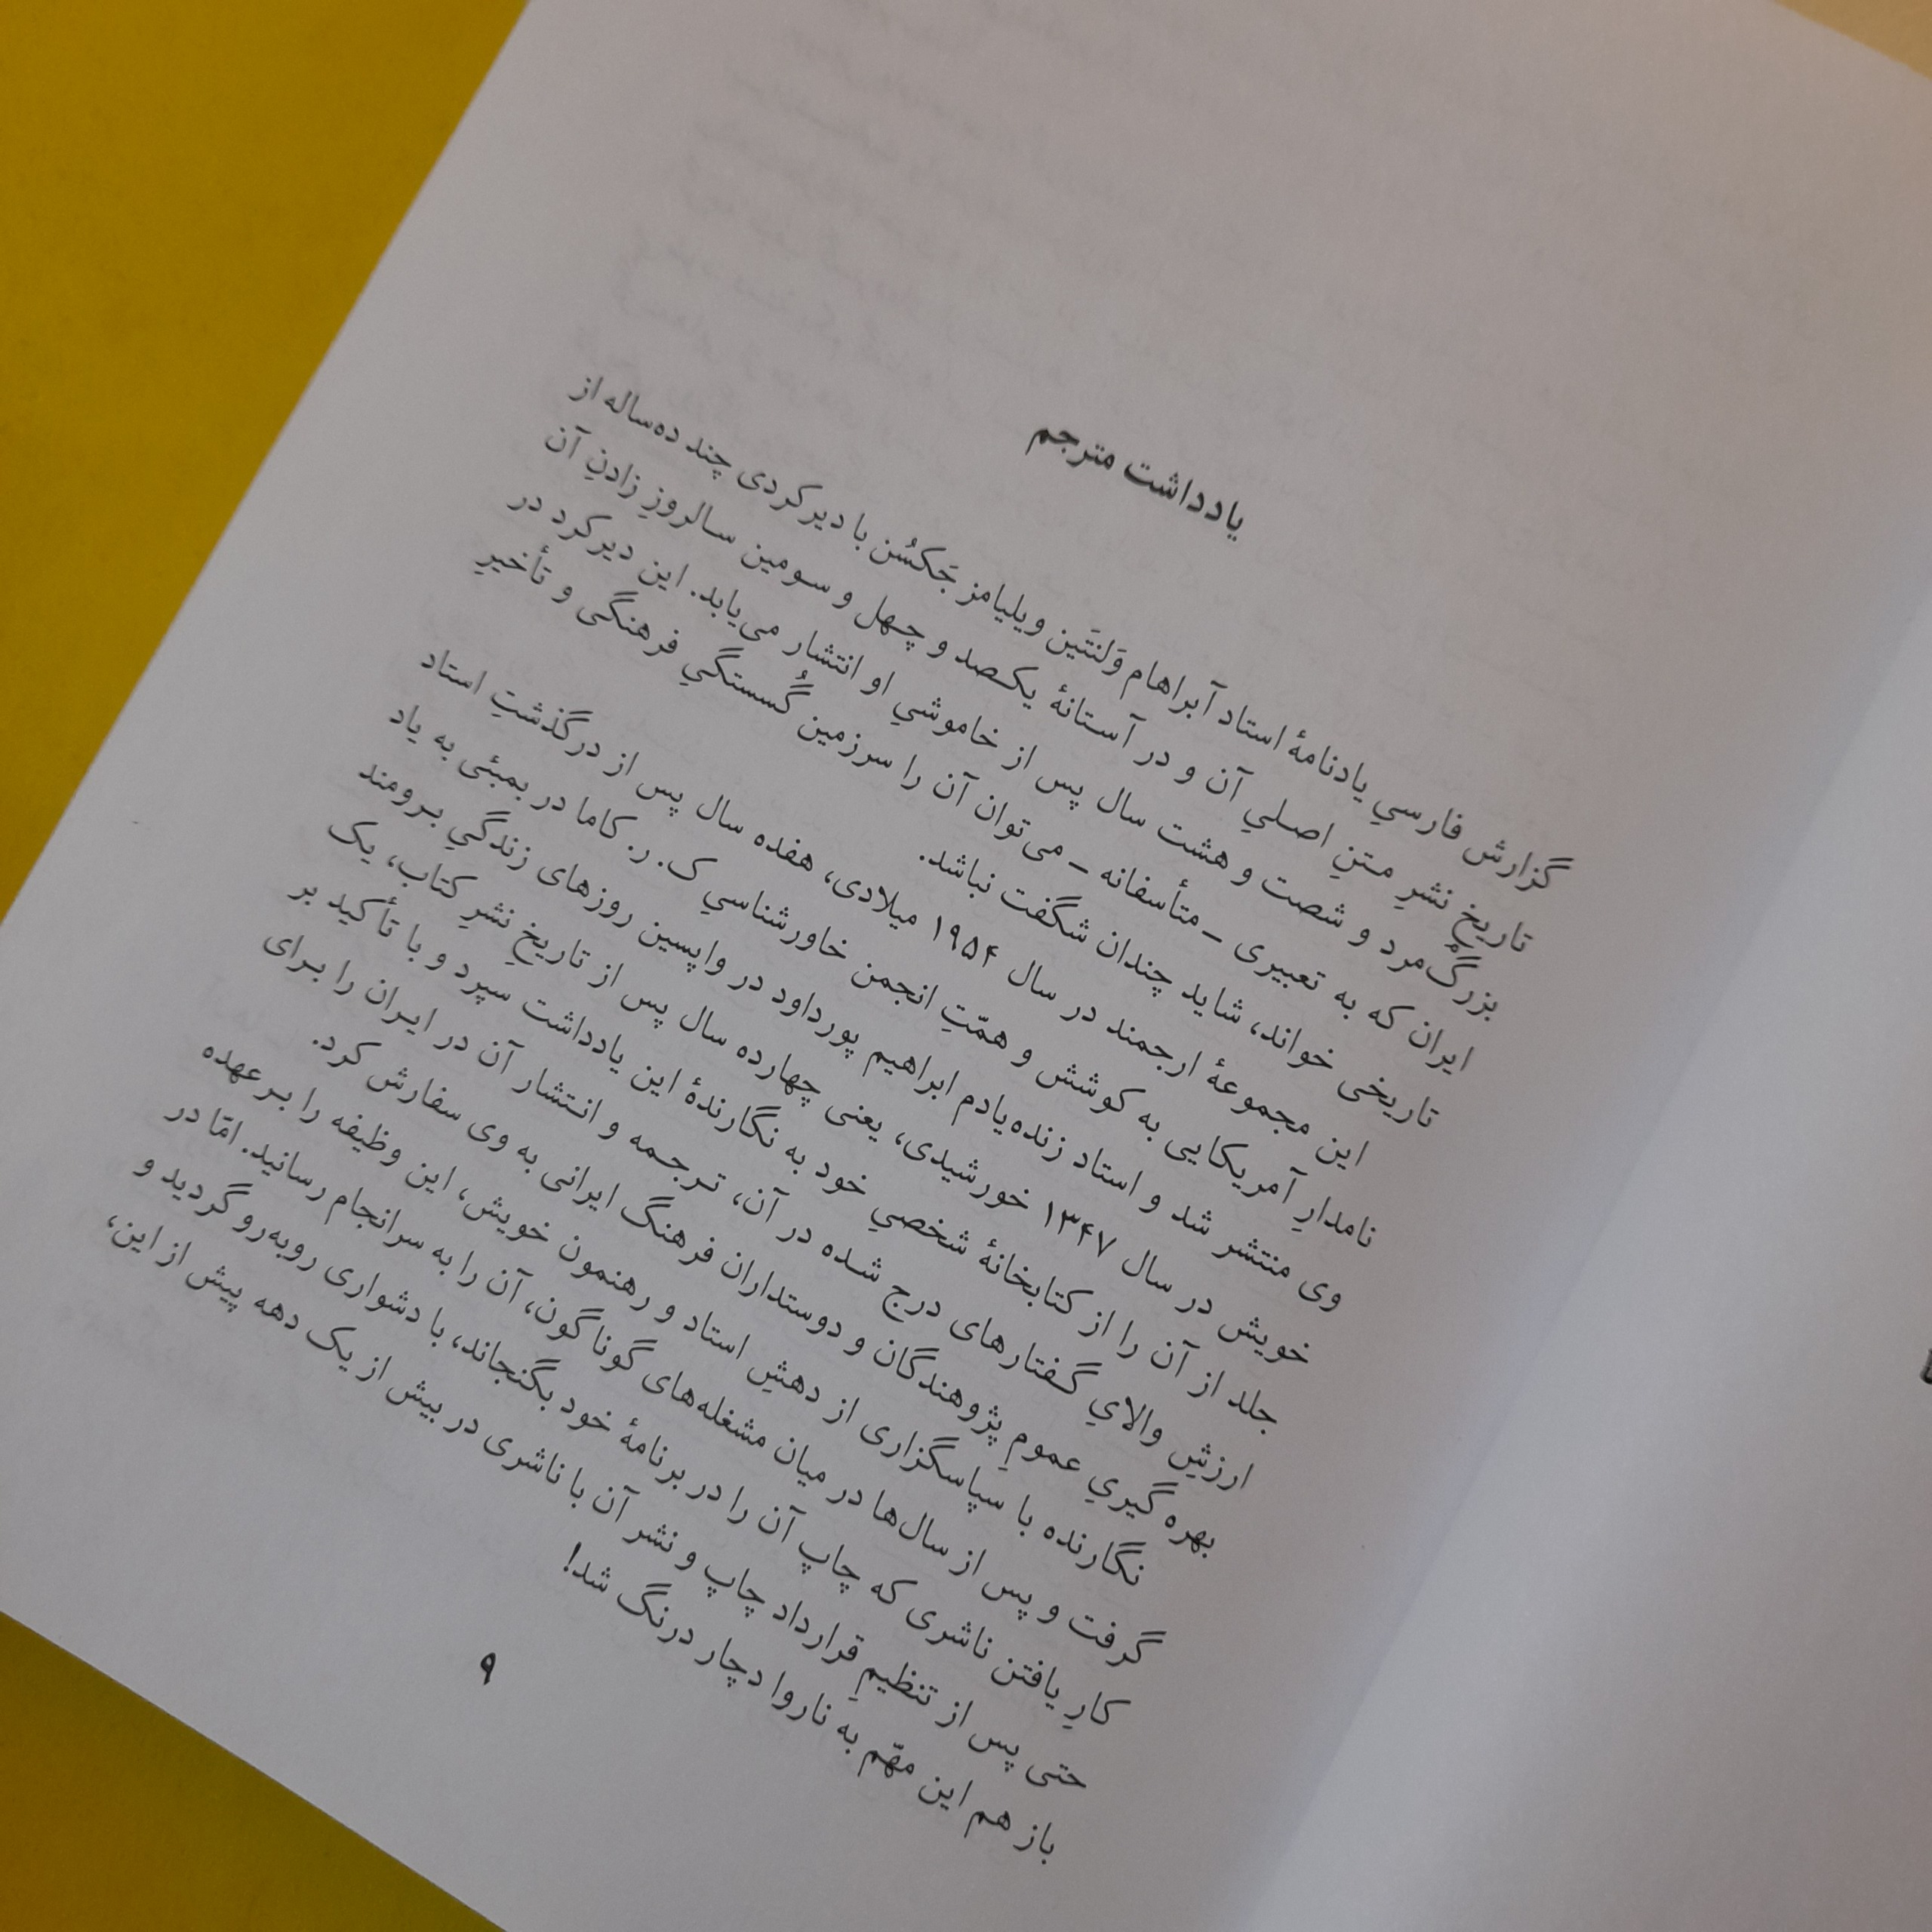 یادداشت مترجم
گزارش فارسیِ یادنامهٔ استاد آبراهام وَلنتَین ویلیامز جَکسُن با دیرکردی چند ده‌ساله از
تاریخِ نشرِ متنِ اصلیِ آن و در آستانهٔ یکصد و چهل و سومین سالروزِ زادنِ آن
بزرگْ‌مرد و شصت و هشت سال پس از خاموشیِ او انتشار می‌یابد. این دیرکرد در
ایران که به تعبیری ـ متأسفانه ـ می‌توان آن را سرزمین گُسستگیِ فرهنگی و تأخیرِ
تاریخی خواند، شاید چندان شگفت نباشد.
این مجموعهٔ ارجمند در سال ۱۹۵۴ میلادی، هفده سال پس از درگذشتِ استاد
نامدارِ آمریکایی به کوشش و همّتِ انجمن خاورشناسیِ ک. ر. کاما در بمبئی به یاد
وی منتشر شد و استاد زنده‌یادم ابراهیم پورداود در واپسین روزهای زندگیِ برومند
خویش در سال ۱۳۴۷ خورشیدی، یعنی چهارده سال پس از تاریخِ نشرِ کتاب، یک
جلد از آن را از کتابخانهٔ شخصیِ خود به نگارندهٔ این یادداشت سپرد و با تأکید بر
ارزشِ والایِ گفتارهای درج شده در آن، ترجمه و انتشار آن در ایران را برای
بهره‌گیریِ عمومِ پژوهندگان و دوستداران فرهنگ ایرانی به وی سفارش کرد.
نگارنده با سپاسگزاری از دهشِ استاد و رهنمون خویش، این وظیفه را برعهده
گرفت و پس از سال‌ها در میان مشغله‌های گوناگون، آن را به سرانجام رسانید. امّا در
کارِ یافتن ناشری که چاپ آن را در برنامهٔ خود بگنجاند، با دشواری روبه‌رو گردید و
حتی پس از تنظیمِ قرارداد چاپ و نشر آن با ناشری در بیش از یک دهه پیش از این،
باز هم این مهّم به ناروا دچار درنگ شد!
۹